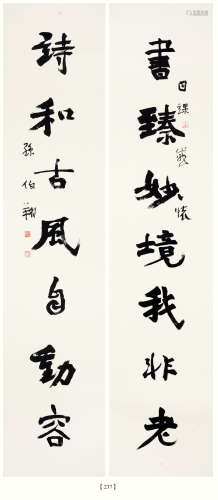 書臻妙境我非老
日課戲懷
詩和古風自動容
孫伯翔
【237】